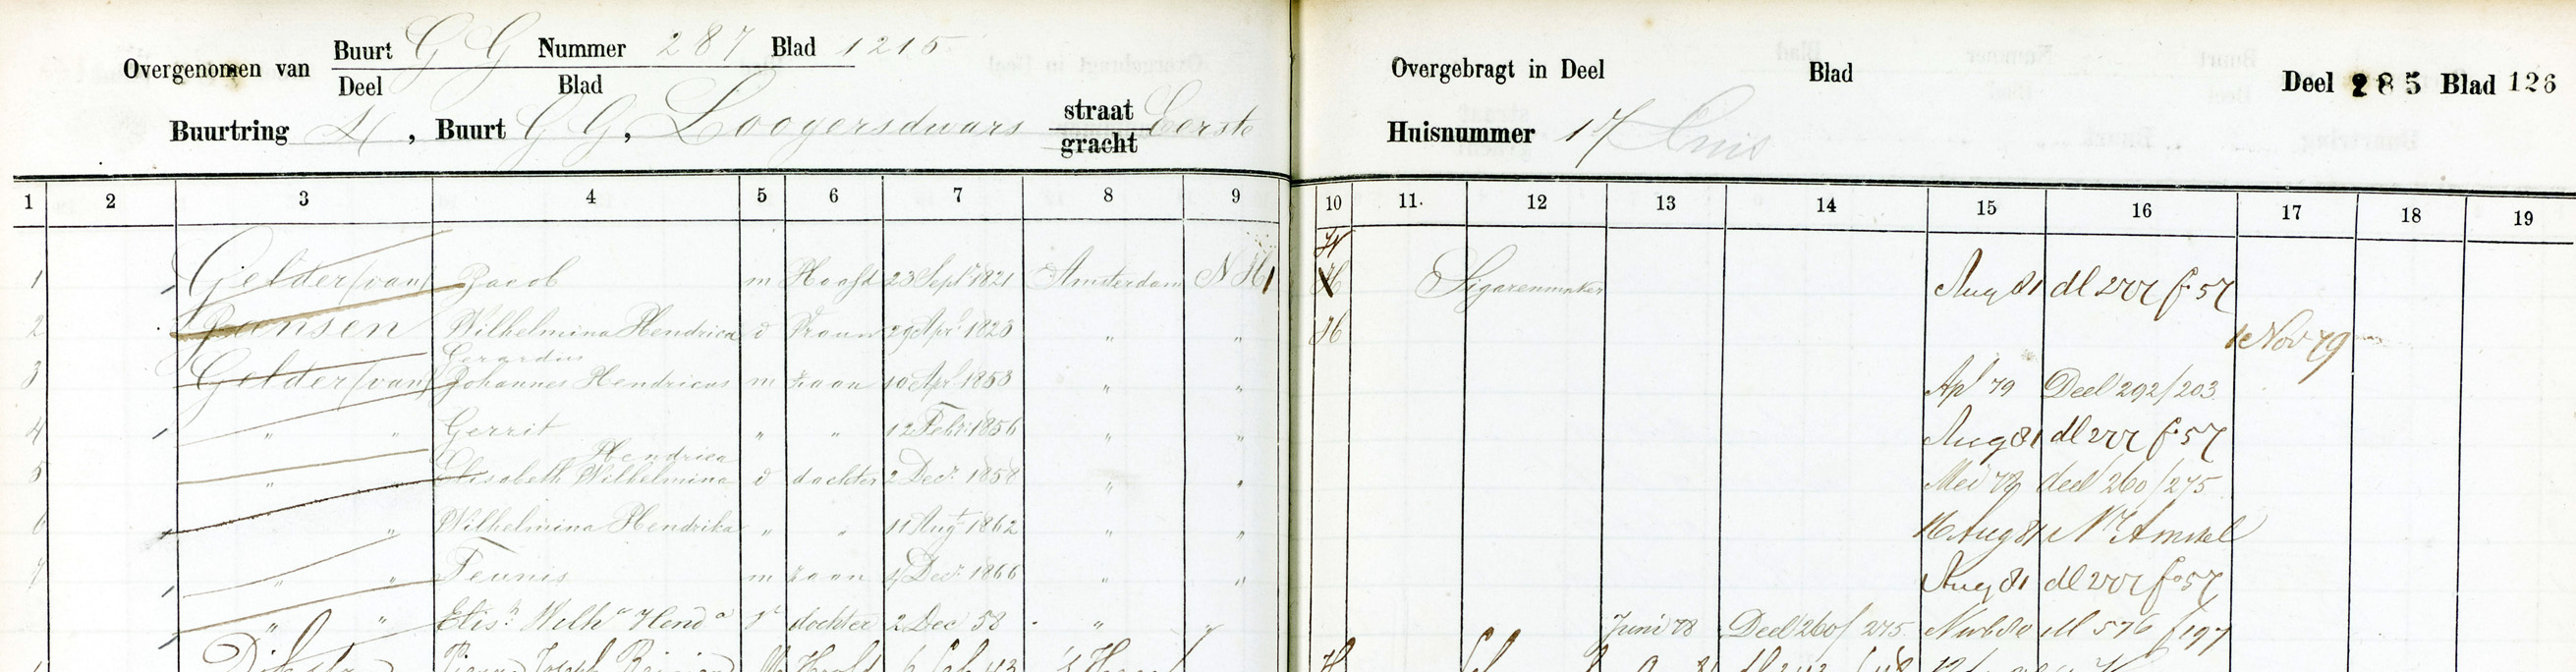 Overgenomen van Buurt GG Nummer 287 Blad 1215
Deel Blad
Buurtring 4, Buurt GG, Loogersdwars straat Eerste
gracht
Overgebragt in Deel Blad Deel 285 Blad 126
Huisnummer 17 Huis
1 2 3 4 5 6 7 8 9 10 11. 12 13 14 15 16 17 18 19
W
1 Gelder (van) Jacob m Hoofd 23 Sept 1821 Amsterdam NH H Sigarenmaker Aug 81 dl 277 f 57
2 Jansen Wilhelmina Hendrica v Vrouw 29 Apr 1823 " " H 1 Nov 79
Gerardus
3 Gelder (van) Johannes Hendricus m zoon 10 Apr 1853 " " Apl 79 Deel 292/203
4 " " Gerrit " " 12 Febr. 1856 " " Aug 81 dl 277 f 57
Hendrica
5 " Elisabeth Wilhelmina v dochter 2 Dec 1858 " " Mei 78 deel 260/275
6 " Wilhelmina Hendrika " " 11 Aug 1862 " " 16 Aug 81 Nr Amstel
7 " " Teunis m zoon 4 Dec 1866 " " Aug 81 dl 277 fo 57
" " Elish Wilha Henda vr dochter 2 Dec 58 " " Juni 78 Deel 260/275 dl 576 f 197